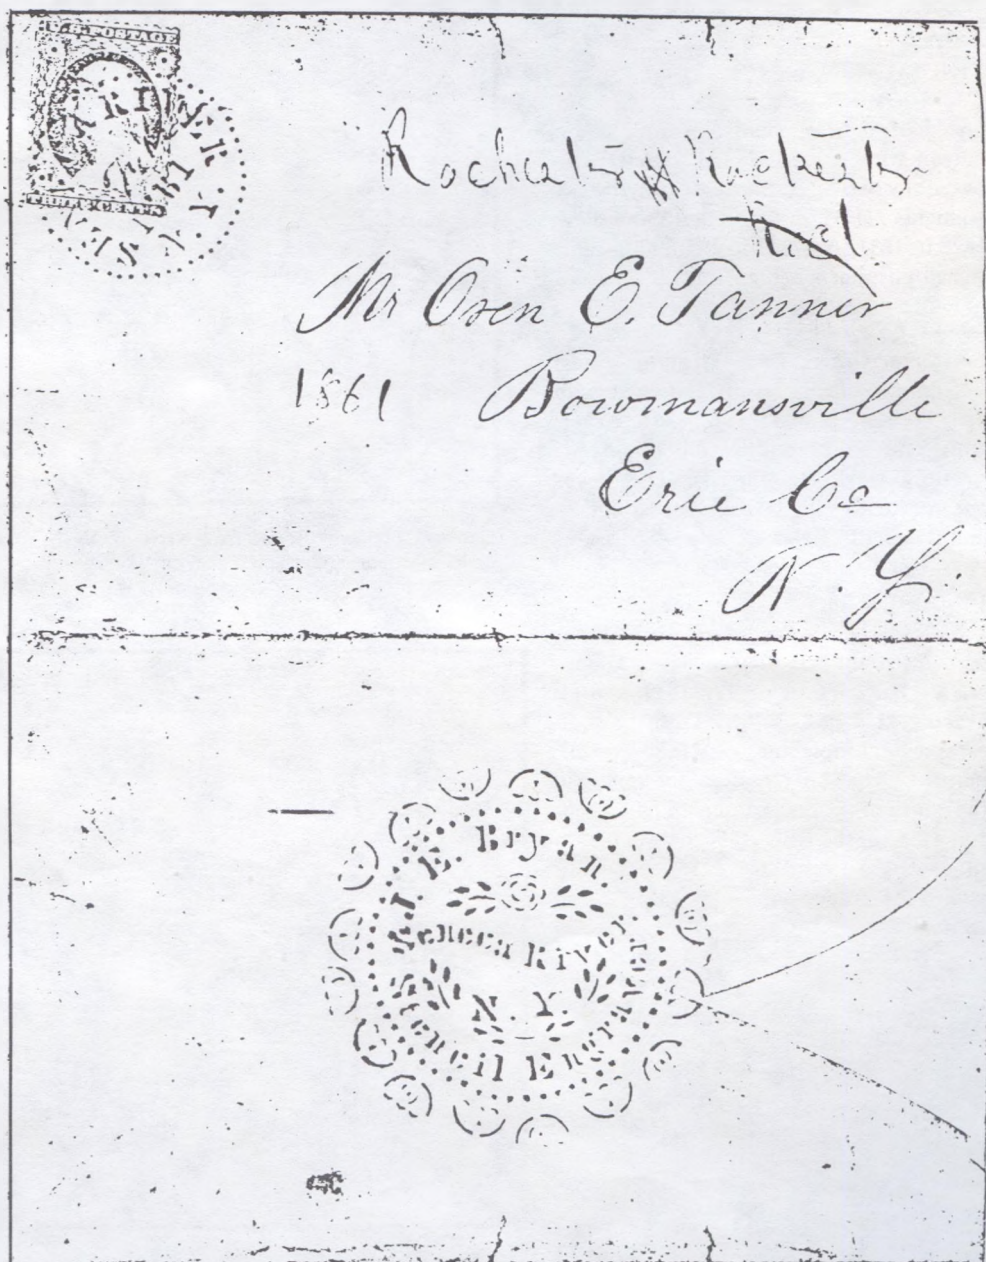 U.S. POSTAGE
THREE CENTS
RIVER
61
Rochester
Mr Oren E. Tanner
1861 Bowmansville
Erie Co
N. Y.
E. Bryan
Seneca River
N. Y.
Stencil Engraver